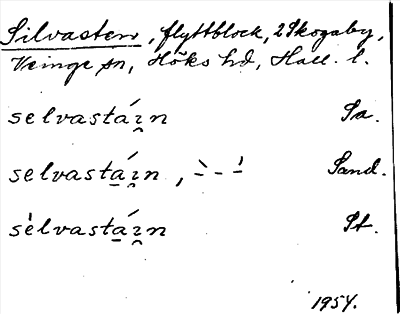 Silvasten, flyttblock, 2 Skogaby,
Veinge sn, Höks hd, Hall. l.
selvastá̱ı̯n Sa.
selvastá̱ı̯n, ˋ – – ́– Sand.
sèlvastá̱ı̯n St.
1954.